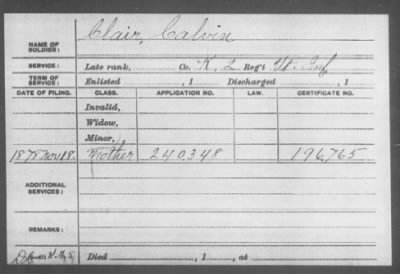 NAME OF SOLDIER: Clair, Calvin
SERVICE: Late rank, Co. K, 2 Reg't Vt. Inf.
TERM OF SERVICE: Enlisted , 1 Discharged , 1
DATE OF FILING. CLASS. APPLICATION NO. LAW. CERTIFICATE NO.
Invalid,
Widow,
Minor,
1878 Nov 18. Mother 240348 196765
ADDITIONAL SERVICES:
REMARKS:
Died , 1 , at